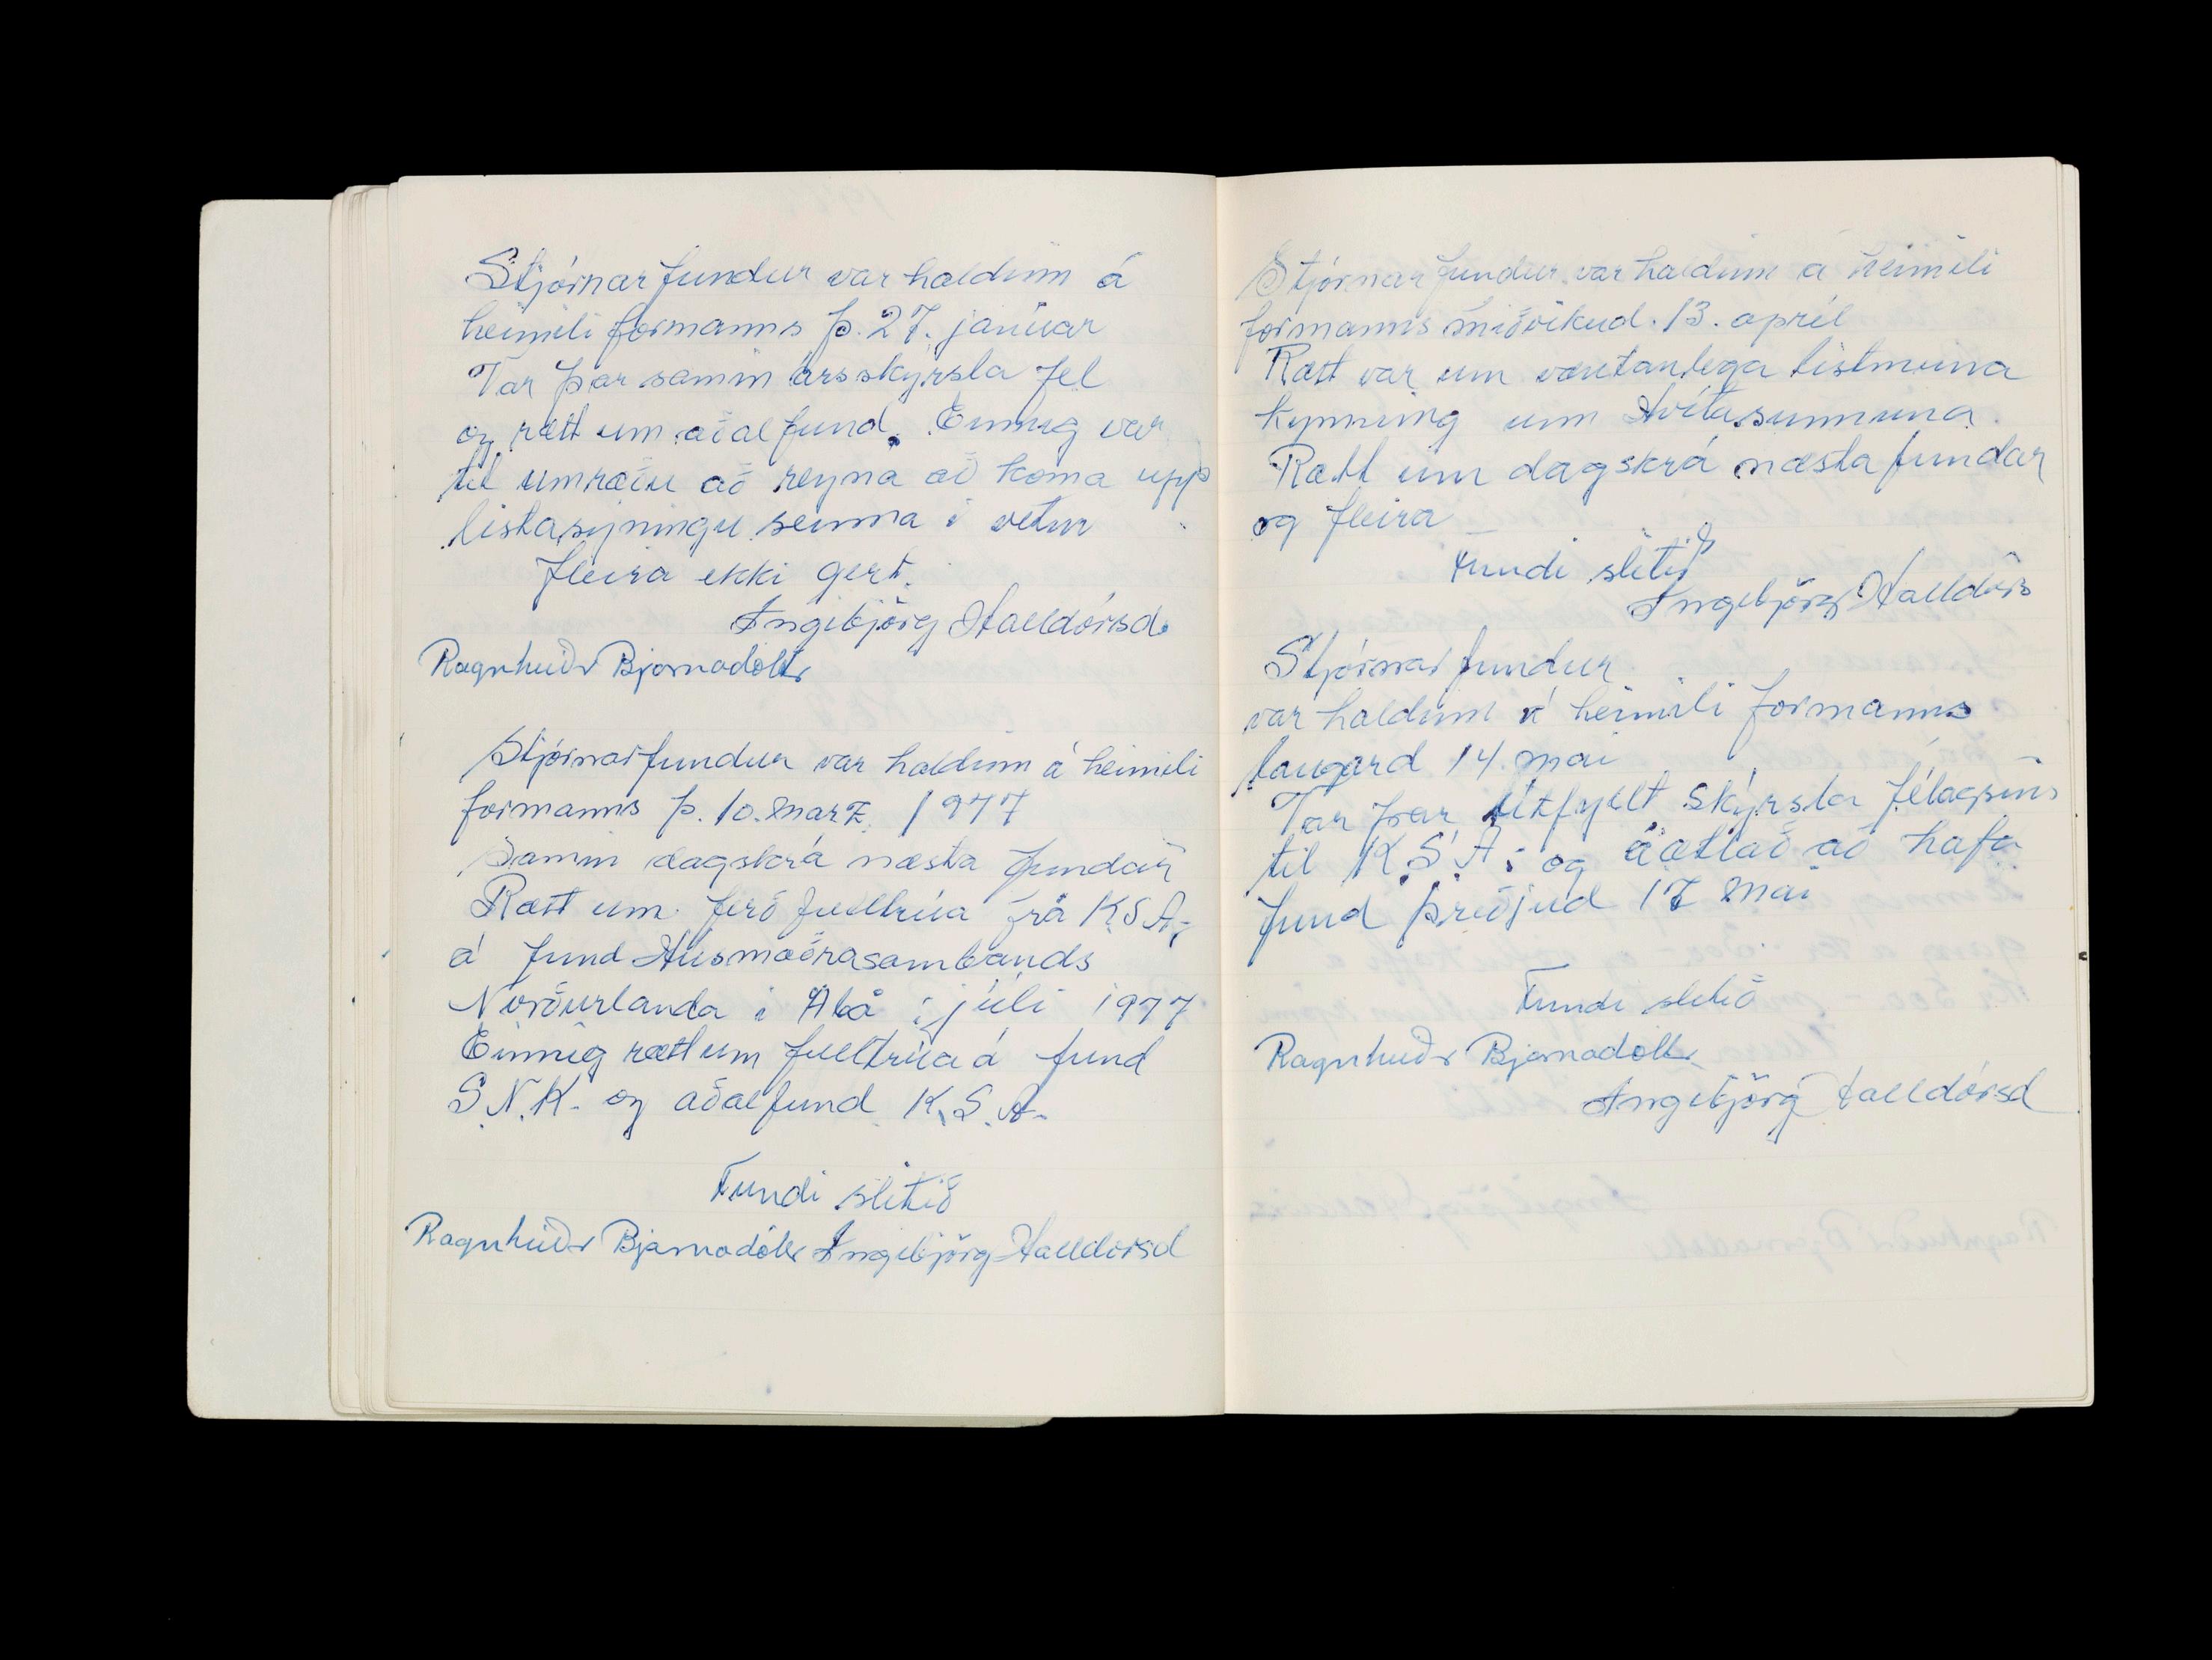 Stjórnarfundur var haldinn á
heimili formanns þ. 27. janúar
Var þar samin ársskýrsla fel
og rætt um aðalfund. Einnig var
til umræðu að reyna að koma upp
listasýningu seinna í vetur
fleira ekki gert.
Ingibjörg Halldórsd.
Ragnheiðr Bjarnadóttr
Stjórnarfundur var haldinn á heimili
formanns þ. 10. marz 1977
Samin dagskrá næsta fundar
Rætt um ferð fulltrúa frá K.S.A.
á fund Húsmæðrasambands
Norðurlanda í Åbo í júlí 1977
Einnig rætt um fulltrúa á fund
S.N.K. og aðalfund K.S.A.
Fundi slitið
Ragnheiðr Bjarnadóttr Ingibjörg Halldórsd
Stjórnarfundur var haldinn á heimili
formanns miðvikud. 13. apríl
Rætt var um væntanlega listmuna
kynning um Hvítasunnuna.
Rætt um dagskrá næsta fundar
og fleira
Fundi slitið
Ingibjörg Halldórs
Stjórnarfundur
var haldinn á heimili formanns
laugard 14. mai
Var þar útfyllt skýrsla félagsins
til K.S.A. og áætlað að hafa
fund þriðjud 17 mai
Fundi slitið
Ragnheiðr Bjarnadóttr
Ingibjörg Halldórsd